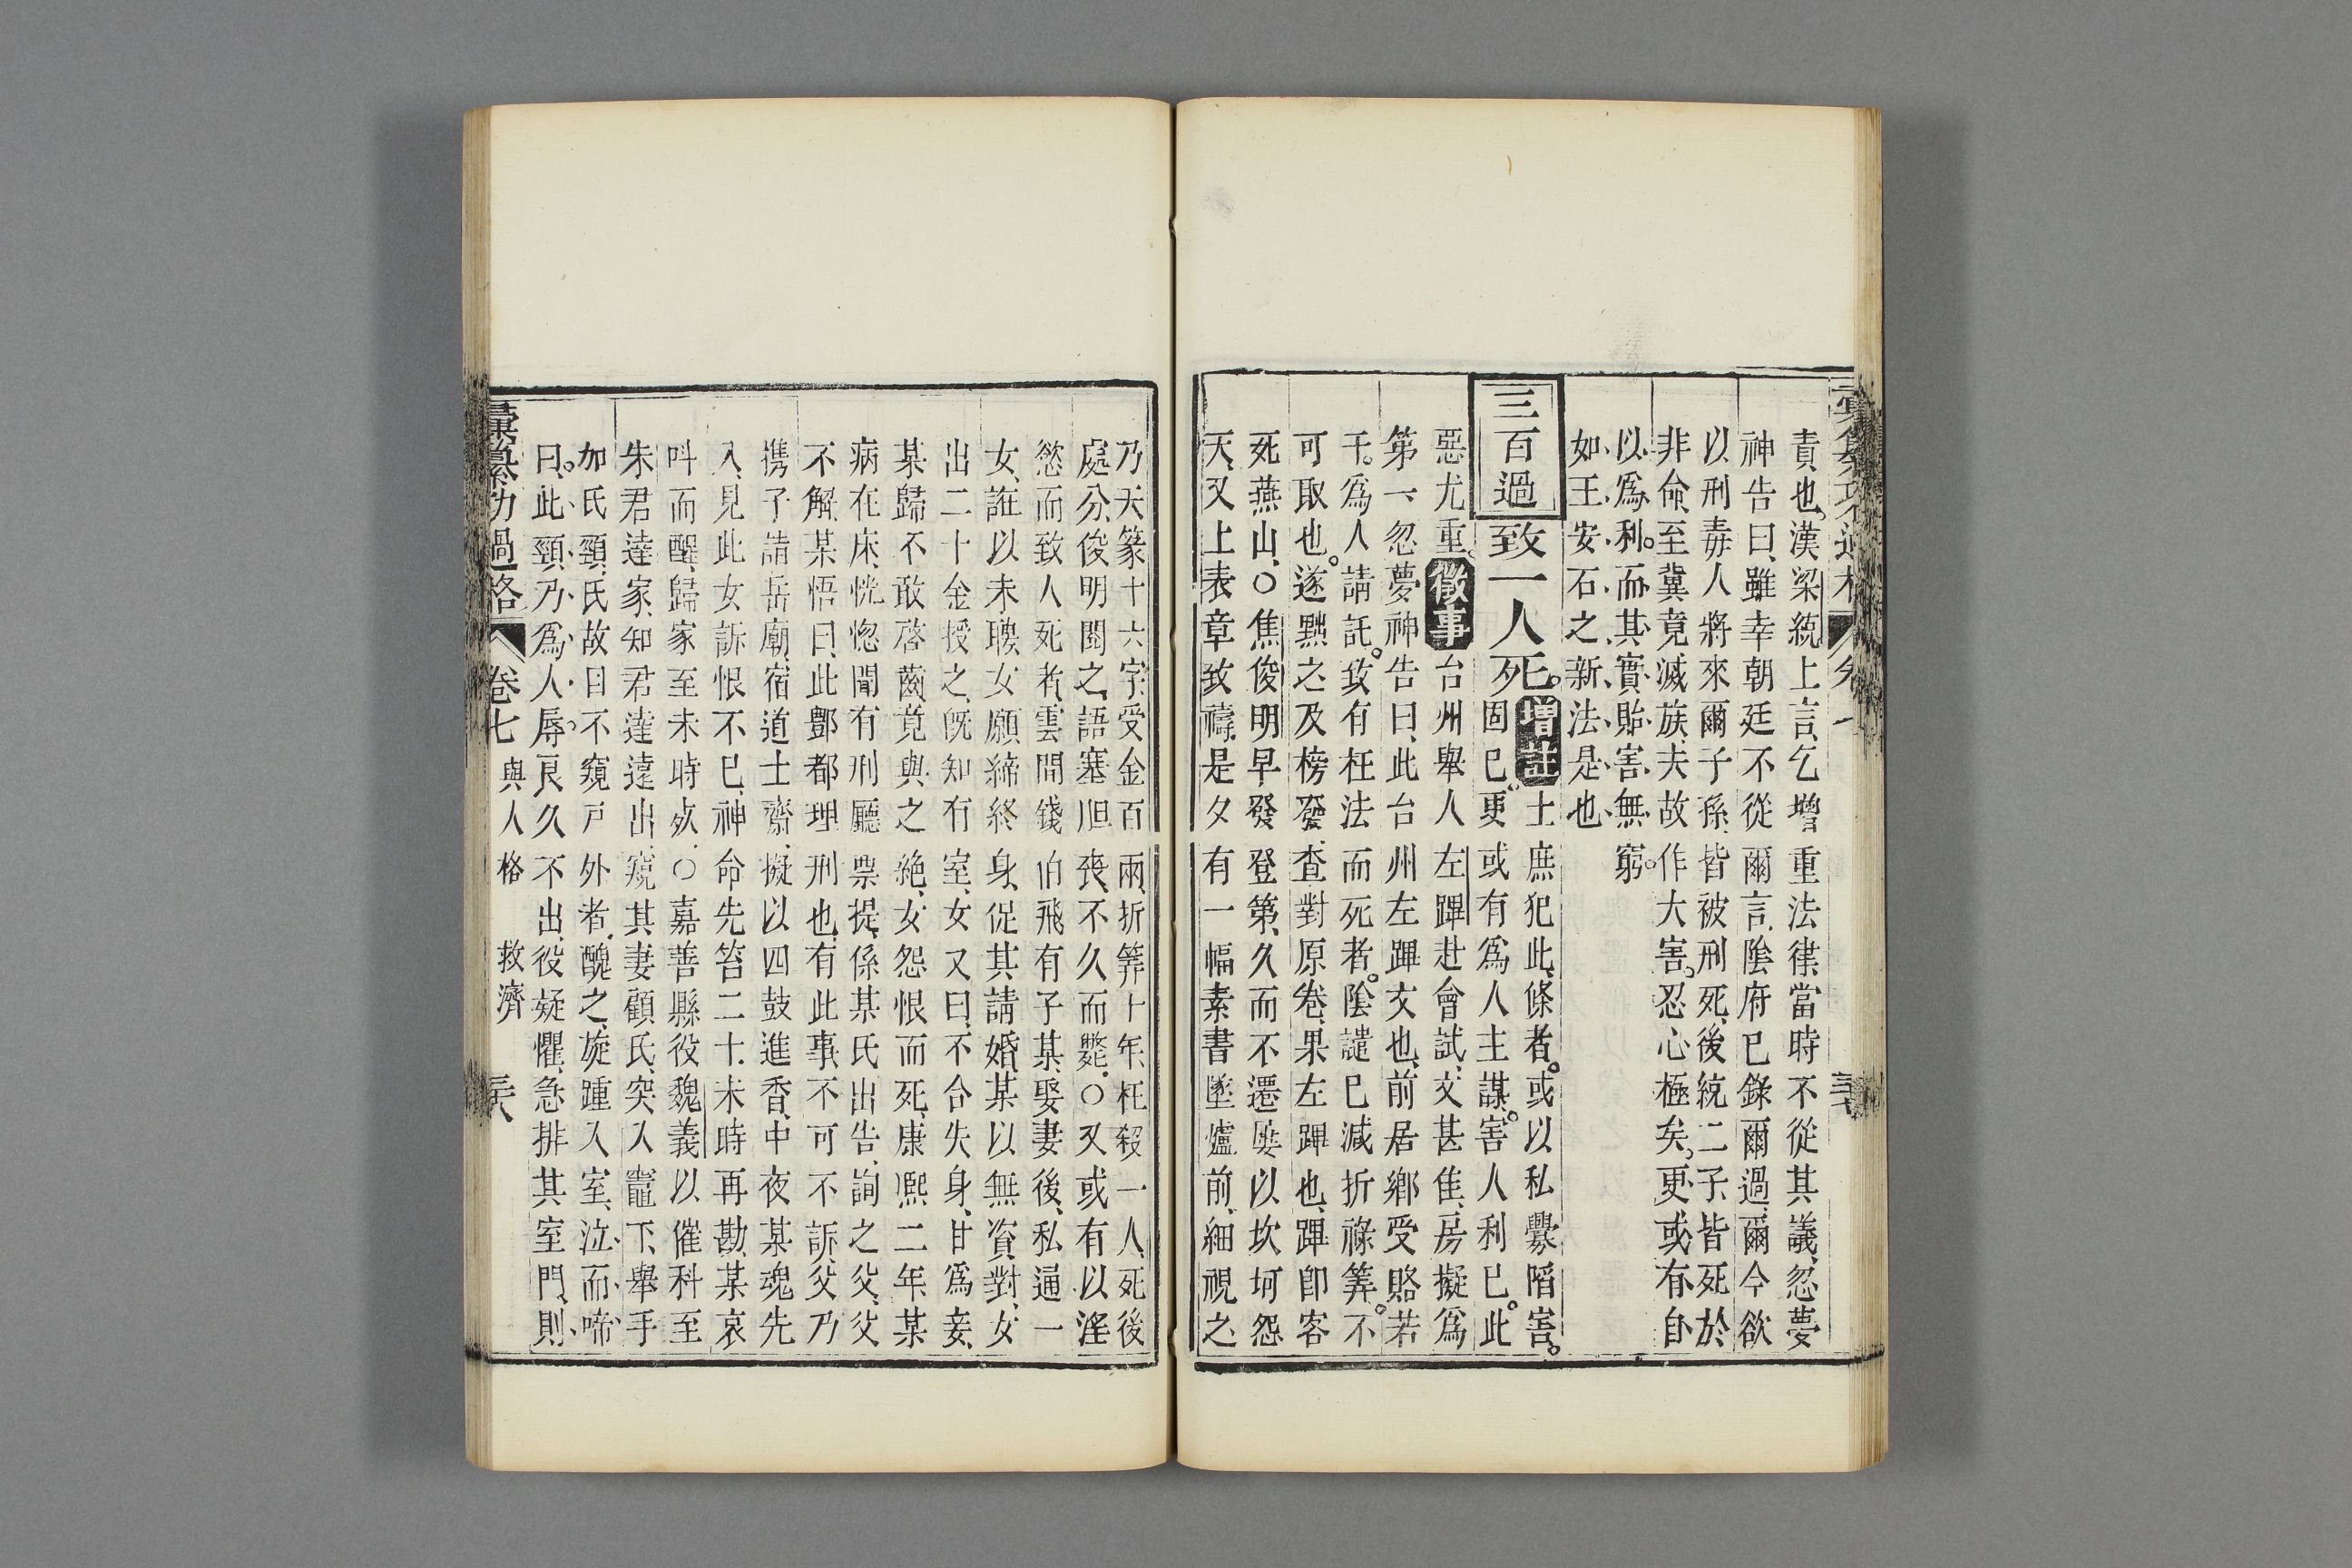 責也漢梁統上言乞增重法律當時不從其議忽夢
神告曰雖幸朝廷不從爾言陰府已錄爾過爾今欲
以刑毒人將來爾子孫皆被刑死後統二子皆死於
非命至冀竟滅族夫故作大害忍心極矣更或有自
以爲利而其實貽害無窮
如王安石之新法是也
三百過 致一人死 增註 士庶犯此條者或以私釁陷害
固已更或有爲人主謀害人利己此
惡尤重 徵事 台州舉人左蹕赴會試文甚佳房擬爲
第一忽夢神告曰此台州左蹕文也前居鄉受賂若
干爲人請託致有枉法而死者陰譴已減折祿筭不
可取也遂黜之及榜發查對原卷果左蹕也蹕卽客
死燕山○焦俊明早發登第久而不遷屢以坎坷怨
天又上表章致禱是夕有一幅素書墜爐前細視之
乃天篆十六字受金百兩折筭十年枉殺一人死後
處分俊明閱之語塞胆喪不久而斃○又或有以淫
慾而致人死者雲間錢伯飛有子某娶妻後私通一
女誑以未聘女願締終身促其請婚某以無資對女
出二十金授之旣知有室女又曰不合失身甘爲妾
某歸不敢啓齒竟與之絶女怨恨而死康熙二年某
病在床恍惚聞有刑廳票提係某氏出告詢之父父
不解某悟曰此酆都理刑也有此事不可不訴父乃
携子請岳廟宿道士齋擬以四鼓進香中夜某魂先
入見此女訴恨不已神命先笞二十未時再勘某哀
呌而醒歸家至未時歿○嘉善縣役魏義以催科至
朱君達家知君達遠出窺其妻顧氏突入竈下舉手
加氏頸氏故日不窺戸外者醜之旋踵入室泣而啼
曰此頸乃爲人辱良久不出役疑懼急排其室門則
彙纂功過格 卷七 與人格 救濟 三六